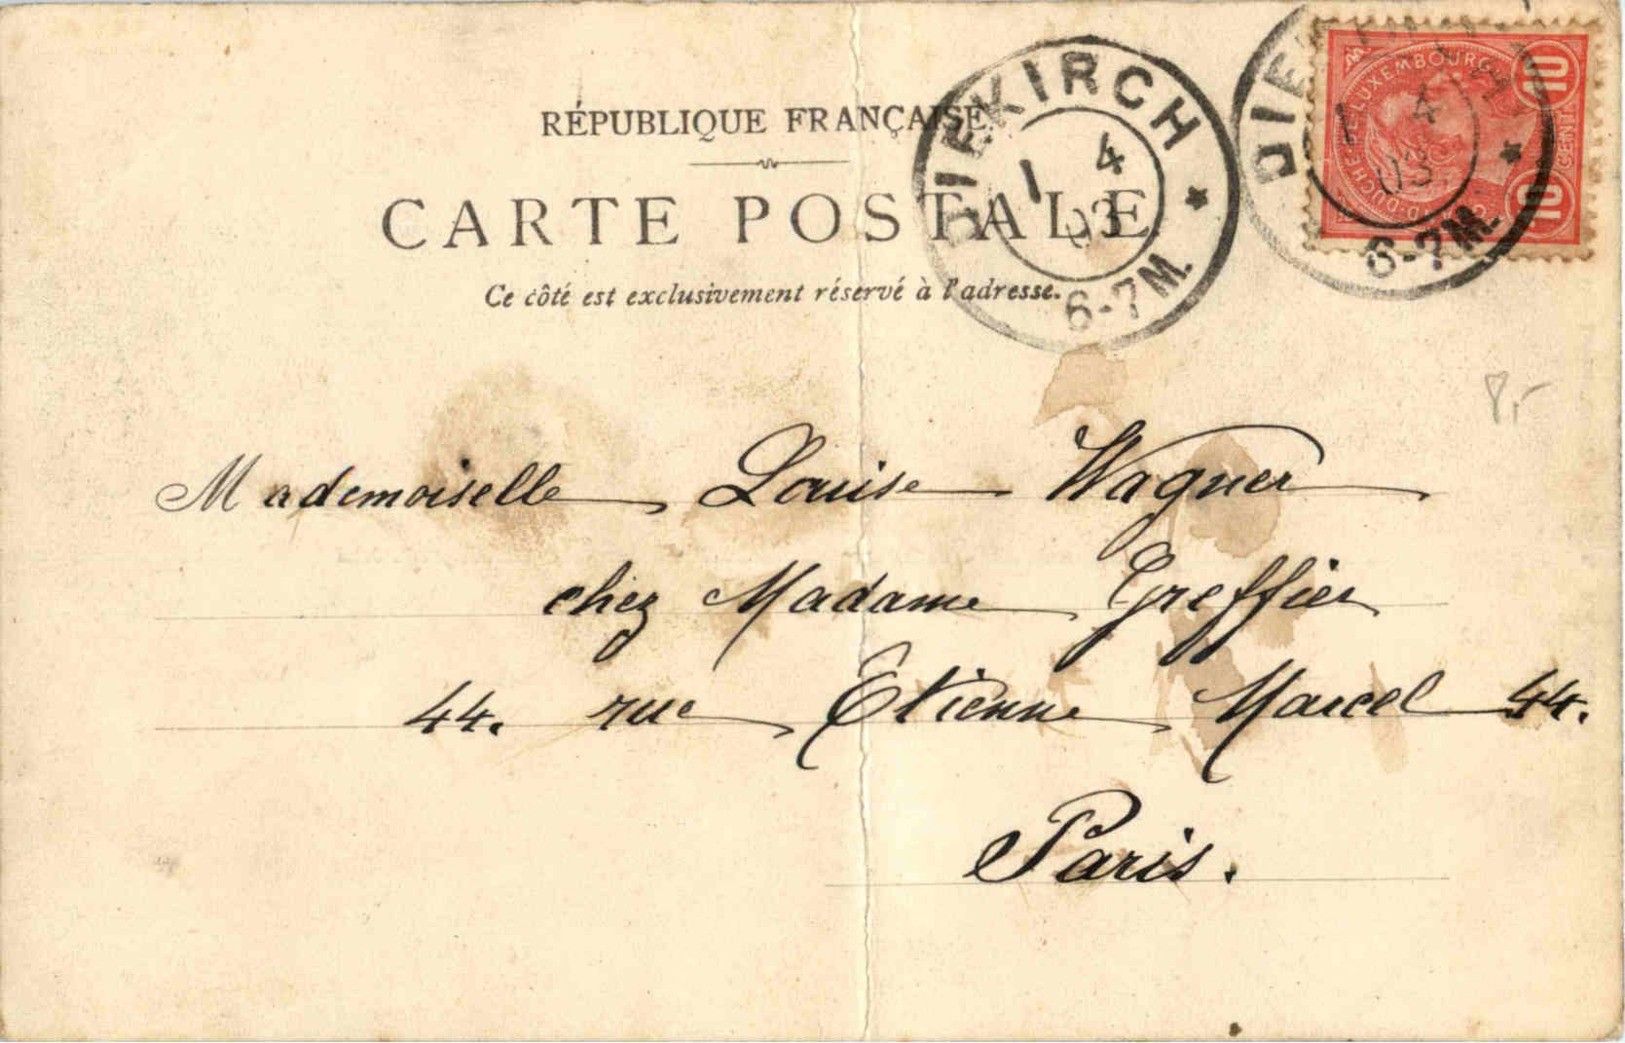 RÉPUBLIQUE FRANÇAISE
CARTE POSTALE
Ce côté est exclusivement réservé à l'adresse.
DIEKIRCH
1 4
03
6-7M.
DIEKIRCH
1 4
03
6-7M.
LUXEMBOURG
10
10
CENT
Mademoiselle Louise Wagner
chez Madame Greffier
44. rue Etienne Marcel 44.
Paris.